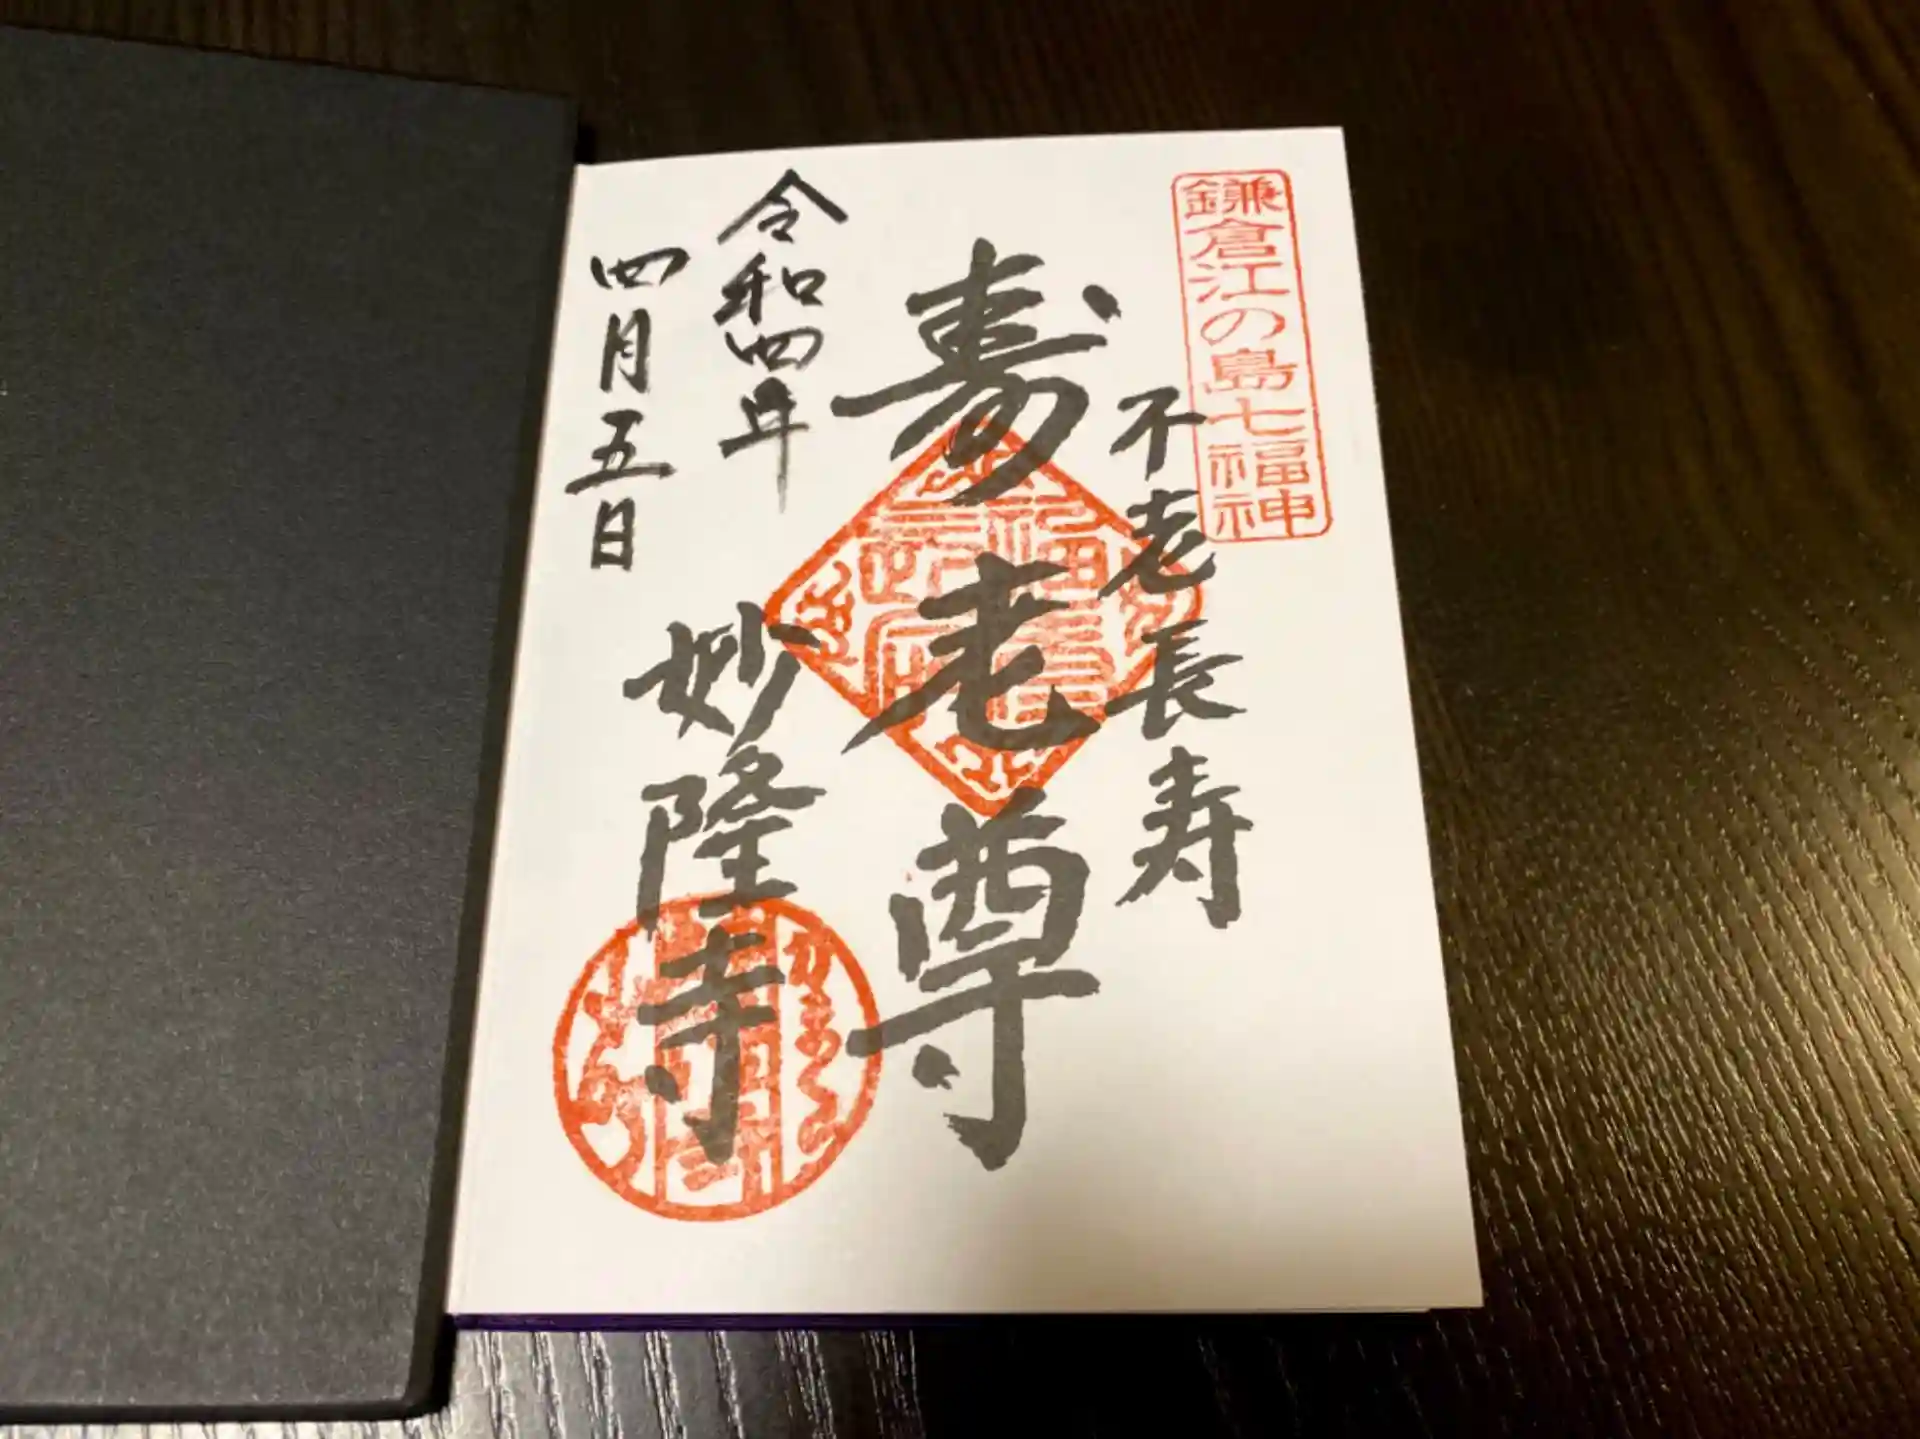 鎌倉江の島七福神
不老長寿
寿老尊
令和四年
四月五日
妙隆寺